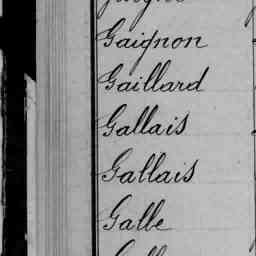 Gaignon
Gaillard
Gallais
Gallais
Galle